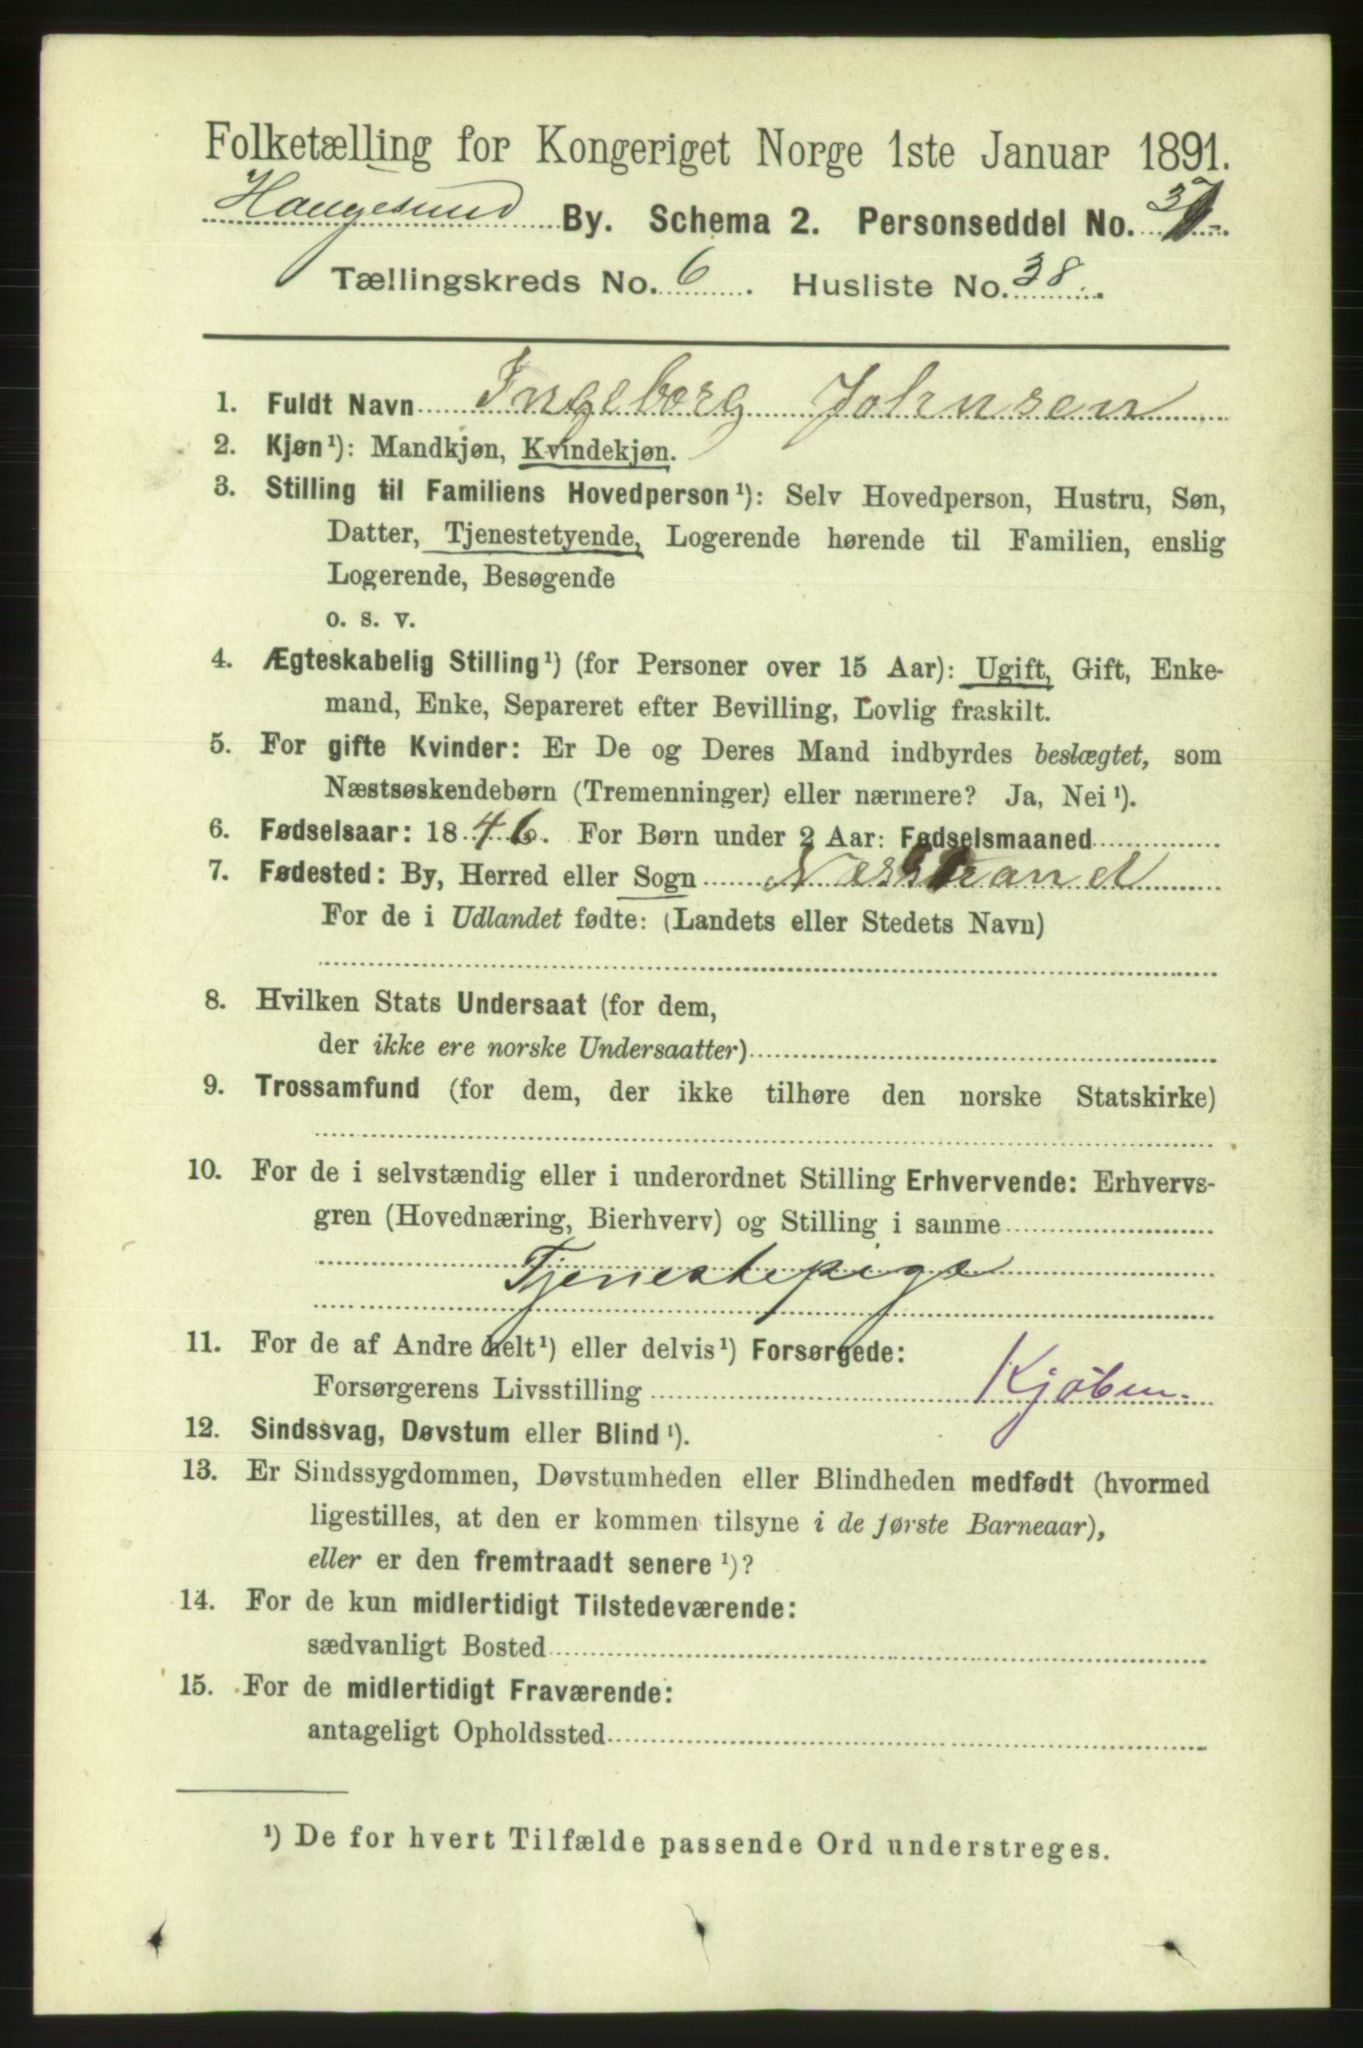 Folketælling for Kongeriget Norge 1ste Januar 1891.
Haugesund By. Schema 2. Personseddel No.
Tællingskreds No. 6. Husliste No. 38.
1. Fuldt Navn Ingeborg Johnsen
2. Kjøn¹): Mandkjøn, Kvindekjøn.
3. Stilling til Familiens Hovedperson¹): Selv Hovedperson, Hustru, Søn,
Datter, Tjenestetyende, Logerende hørende til Familien, enslig
Logerende, Besøgende
o. s. v.
4. Ægteskabelig Stilling¹) (for Personer over 15 Aar): Ugift, Gift, Enke-
mand, Enke, Separeret efter Bevilling, Lovlig fraskilt.
5. For gifte Kvinder: Er De og Deres Mand indbyrdes beslægtet, som
Næstsøskendebørn (Tremenninger) eller nærmere? Ja, Nei¹).
6. Fødselsaar: 1846. For Børn under 2 Aar: Fødselsmaaned
7. Fødested: By, Herred eller Sogn Nærstrand
For de i Udlandet fødte: (Landets eller Stedets Navn)
8. Hvilken Stats Undersaat (for dem,
der ikke ere norske Undersaatter)
9. Trossamfund (for dem, der ikke tilhøre den norske Statskirke)
10. For de i selvstændig eller i underordnet Stilling Erhvervende: Erhvervs-
gren (Hovednæring, Bierhverv) og Stilling i samme
Tjenestepige
11. For de af Andre helt¹) eller delvis¹) Forsørgede:
Forsørgerens Livsstilling Kjøbm.
12. Sindssvag, Døvstum eller Blind¹).
13. Er Sindssygdommen, Døvstumheden eller Blindheden medfødt (hvormed
ligestilles, at den er kommen tilsyne i de første Barneaar),
eller er den fremtraadt senere¹)?
14. For de kun midlertidigt Tilstedeværende:
sædvanligt Bosted
15. For de midlertidigt Fraværende:
antageligt Opholdssted
¹) De for hvert Tilfælde passende Ord understreges.